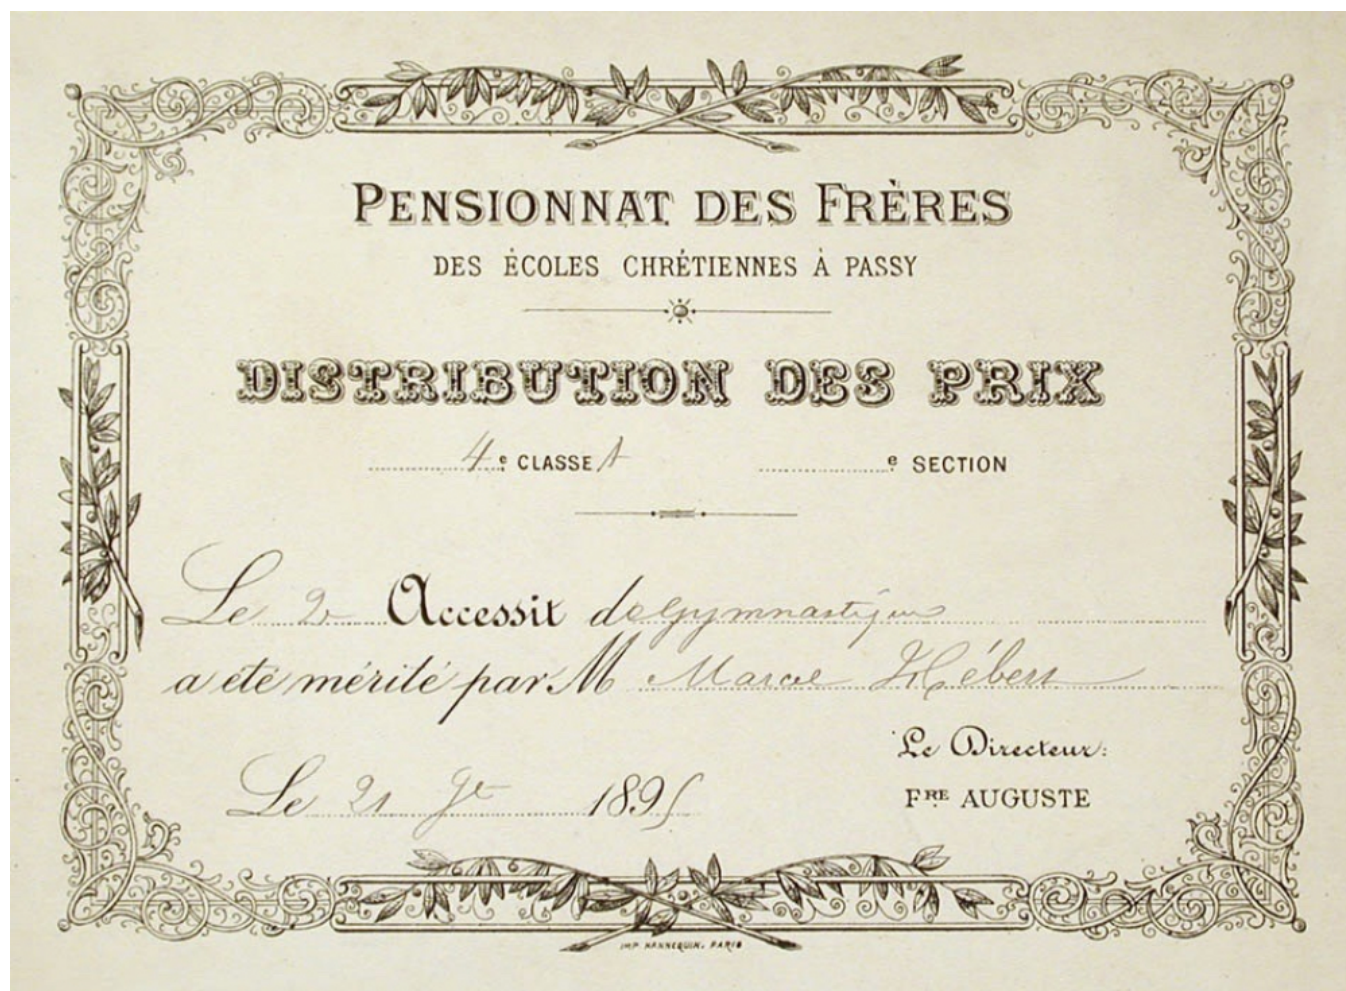 PENSIONNAT DES FRÈRES
DES ÉCOLES CHRÉTIENNES À PASSY
DISTRIBUTION DES PRIX
4e CLASSE A e SECTION
Le 2e Accessit de gymnastique
a été mérité par M Marcel Hébert
Le Directeur:
Le 21 1895
FRE AUGUSTE
IMP. HANNEQUIN. PARIS